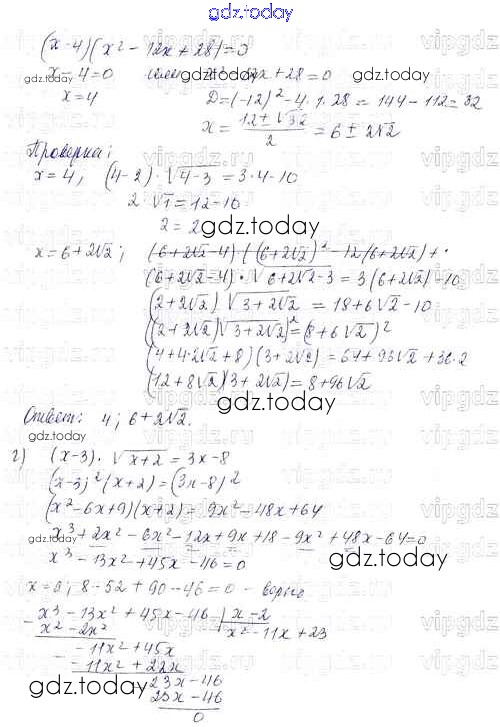 gdz.today
(x-4)(x² - 12x + 28) = 0
x - 4 = 0 или x² - 12x + 28 = 0
gdz.today gdz.today
x = 4 D = (-12)² - 4·1·28 = 144 - 112 = 32
x = (12 ± √32)/2 = 6 ± 2√2
Проверка:
x = 4; (4-2)·√4-3 = 3·4-10
2·√1 = 12-10
2 = 2
gdz.today
x = 6+2√2; (6+2√2-4)((6+2√2)² - 12(6+2√2)+·
(6+2√2-4)·√6+2√2-3 = 3(6+2√2)-10
(2+2√2)√3+2√2 = 18+6√2-10
((2+2√2)√3+2√2)² = (8+6√2)²
(4+4·2√2+8)(3+2√2) = 64+96√2+36·2
(12+8√2)(3+2√2) = 8+96√2
gdz.today
Ответ: 4; 6+2√2.
gdz.today
г) (x-3)·√x+2 = 3x-8
(x-3)²(x+2) = (3x-8)²
(x²-6x+9)(x+2) = 9x²-48x+64
x³+2x²-6x²-12x+9x+18-9x²+48x-64=0
gdz.today gdz.today
x³-13x²+45x-46=0
8-52+90-46=0 - верно
x³-13x²+45x-46 | x-2
x²-2x² x²-11x+23
-11x²+45x
-11x²+22x
gdz.today
23x-46
23x-46
0
gdz.today